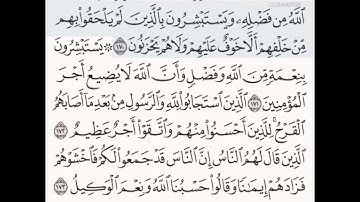 ٱللَّهُ مِن فَضْلِهِۦ وَيَسْتَبْشِرُونَ بِٱلَّذِينَ لَمْ يَلْحَقُوا۟ بِهِم
مِّنْ خَلْفِهِمْ أَلَّا خَوْفٌ عَلَيْهِمْ وَلَا هُمْ يَحْزَنُونَ ١٧٠ ۞ يَسْتَبْشِرُونَ
بِنِعْمَةٍ مِّنَ ٱللَّهِ وَفَضْلٍ وَأَنَّ ٱللَّهَ لَا يُضِيعُ أَجْرَ
ٱلْمُؤْمِنِينَ ١٧١ ٱلَّذِينَ ٱسْتَجَابُوا۟ لِلَّهِ وَٱلرَّسُولِ مِنۢ بَعْدِ مَآ أَصَابَهُمُ
ٱلْقَرْحُ ۚ لِلَّذِينَ أَحْسَنُوا۟ مِنْهُمْ وَٱتَّقَوْا۟ أَجْرٌ عَظِيمٌ ١٧٢
ٱلَّذِينَ قَالَ لَهُمُ ٱلنَّاسُ إِنَّ ٱلنَّاسَ قَدْ جَمَعُوا۟ لَكُمْ فَٱخْشَوْهُمْ
فَزَادَهُمْ إِيمَٰنًا وَقَالُوا۟ حَسْبُنَا ٱللَّهُ وَنِعْمَ ٱلْوَكِيلُ ١٧٣